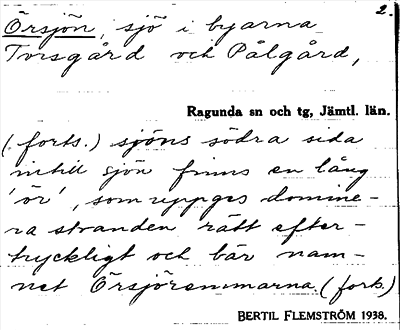 2.
Örsjön, sjö i byarna
Torsgård och Pålgård,
Ragunda sn och tg, Jämtl. län.
(forts.) sjöns södra sida
intill sjön finns en lång
'ör', som uppges domine-
ra stranden rätt efter-
tryckligt och bär nam-
net Örsjörännorna. (forts.)
BERTIL FLEMSTRÖM 1938.